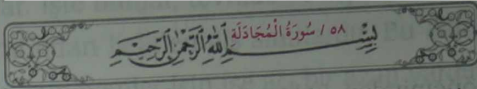 ٥٨ / سُورَةُ الْمُجَادَلَةِ
بِسْمِ اللّٰهِ الرَّحْمٰنِ الرَّحِيمِ